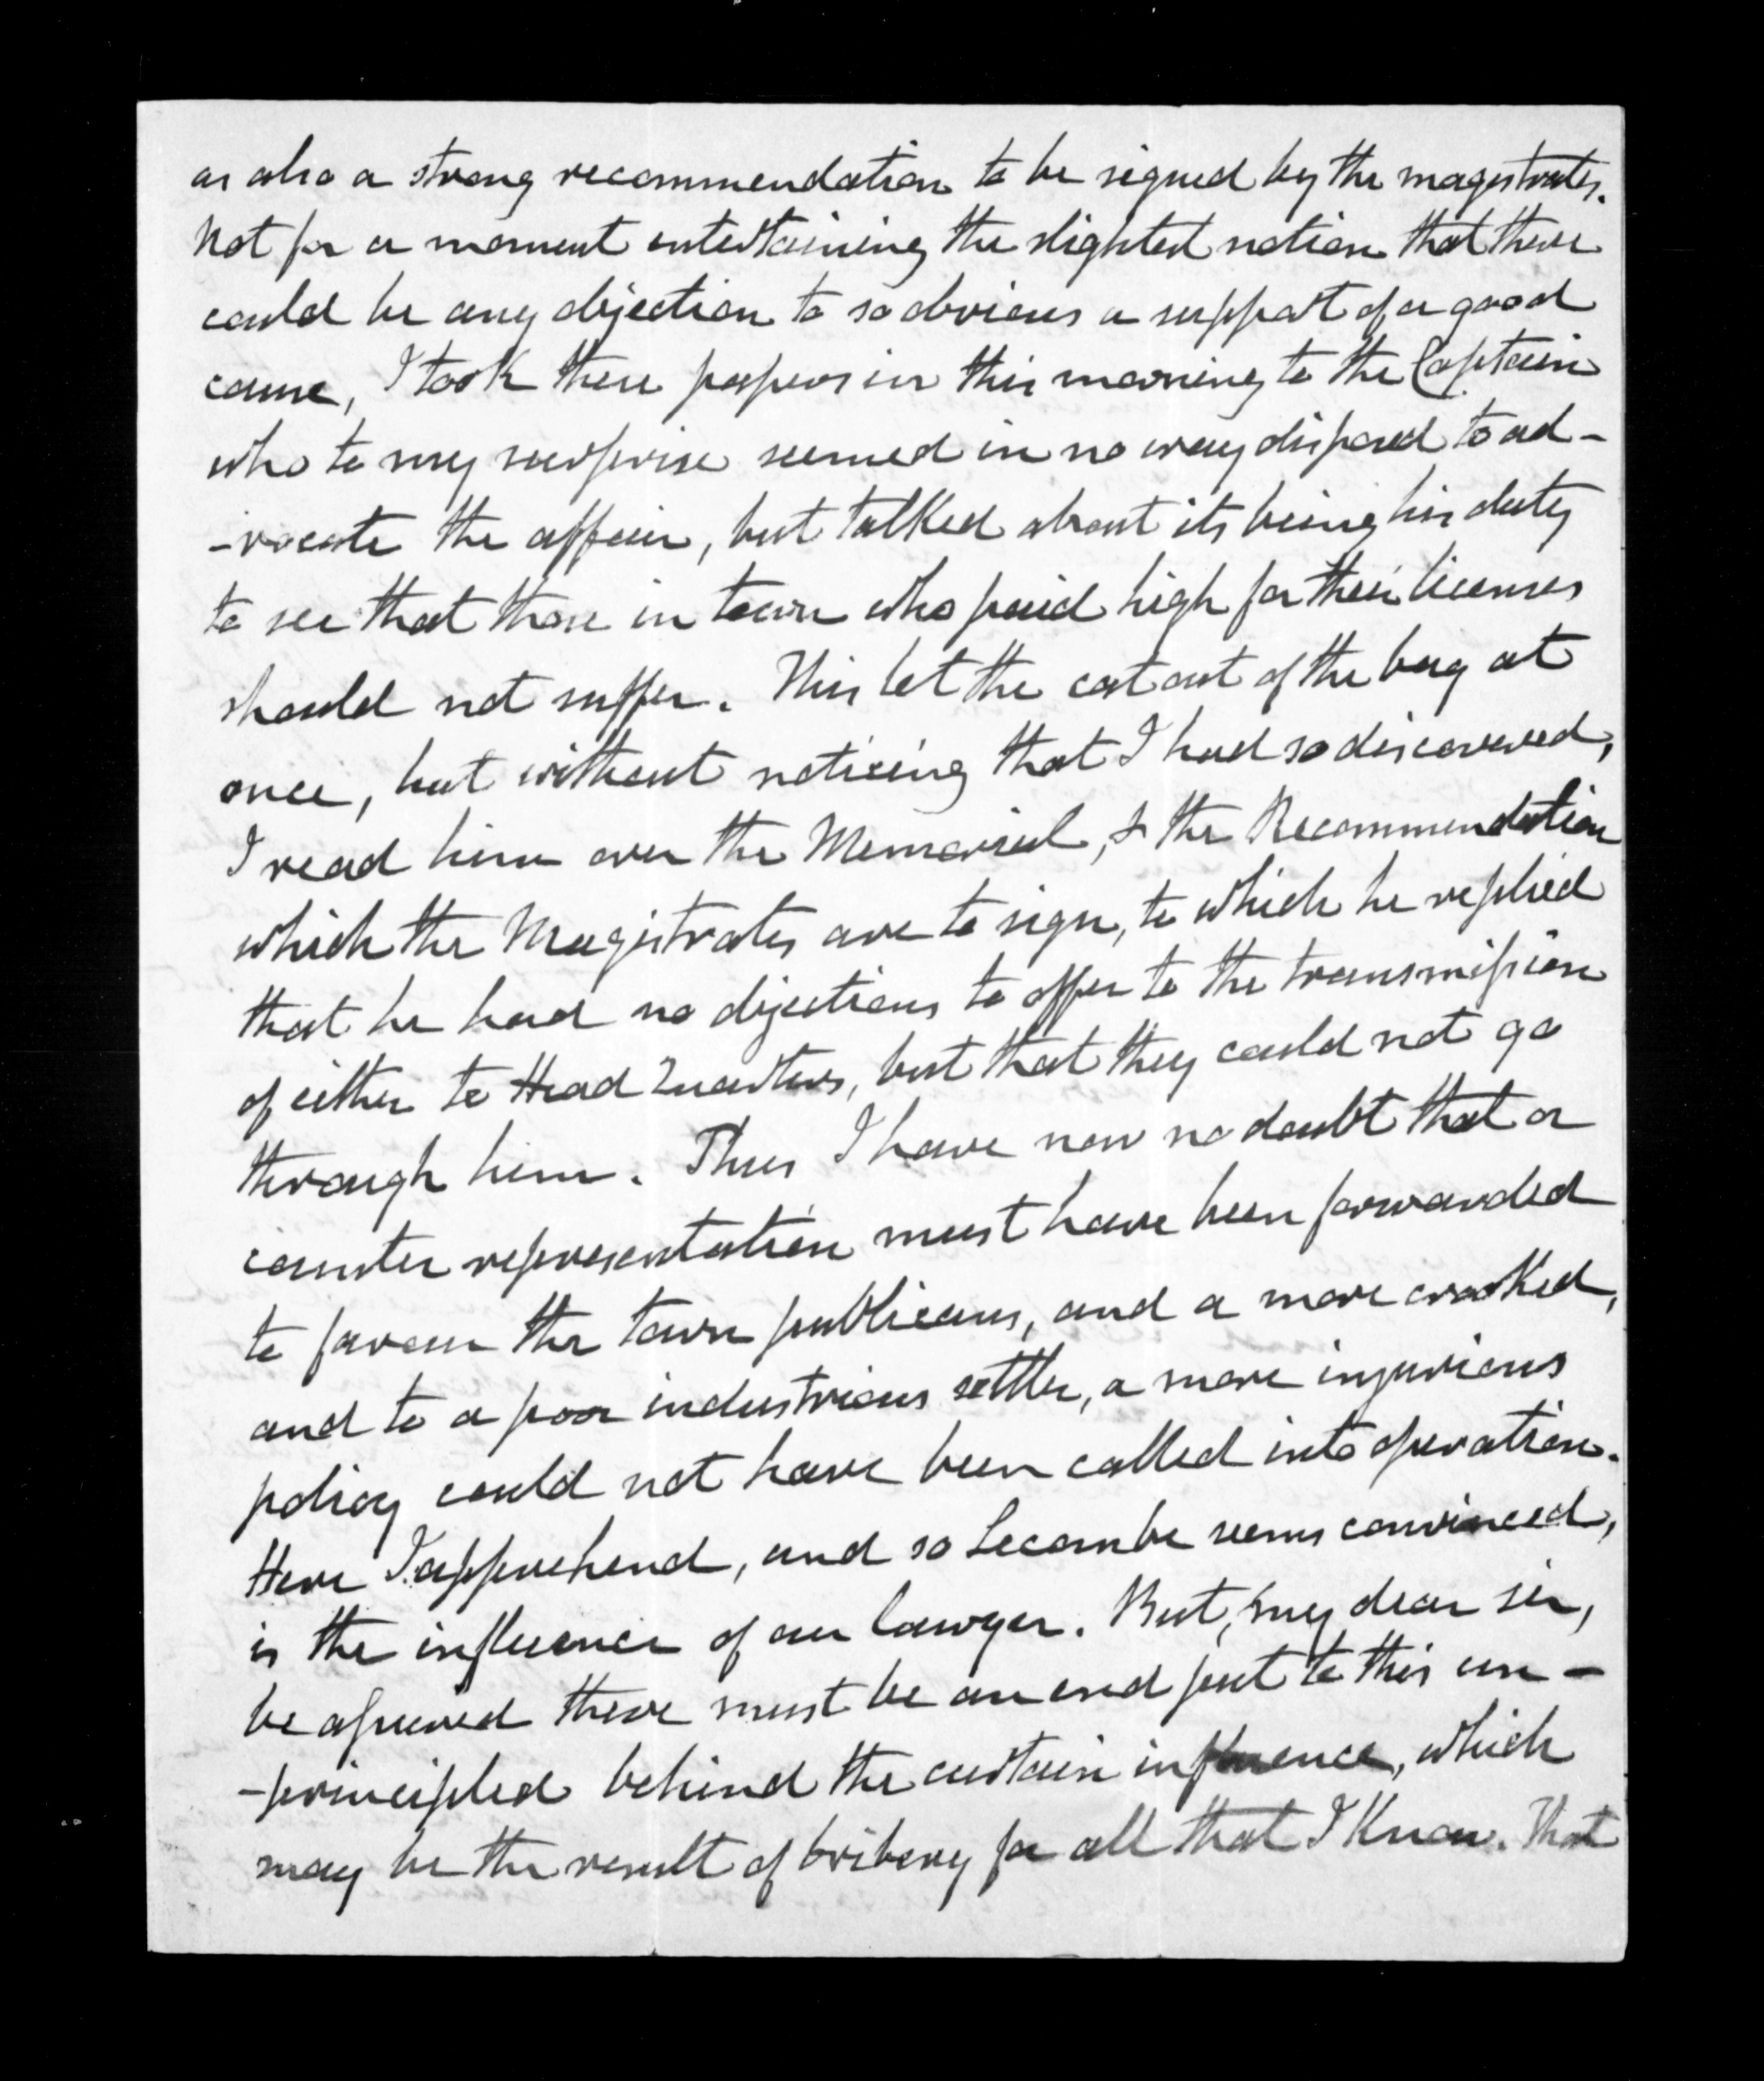 as also a strong recommendation to be signed by the magistrates.
Not for a moment entertaining the slightest notion that there
could be any objection to so obvious a support of a good
cause, I took these papers in this morning to the Captain
who to my surprise seemed in no way disposed to ad-
-vocate the affair, but talked about its being his duty
to see that those in town who paid high for their licenses
should not suffer. This let the cat out of the bag at
once, but without noticing that I had so discovered,
I read him over the Memorial, & the Recommendation
which the Magistrates are to sign, to which he replied
that he had no objections to offer to the transmission
of either to Head Quarters, but that they could not go
through him. Thus I have now no doubt that a
counter representation must have been forwarded
to favour the town publicans, and a more crooked,
and to a poor industrious settler, a more injurious
policy could not have been called into operation.
Here I apprehend, and so Lecombe seems convinced,
is the influence of our lawyer. But, my dear sir,
be assured there must be an end put to this un-
-principled behind the curtain influence, which
may be the result of bribery for all that I know. That